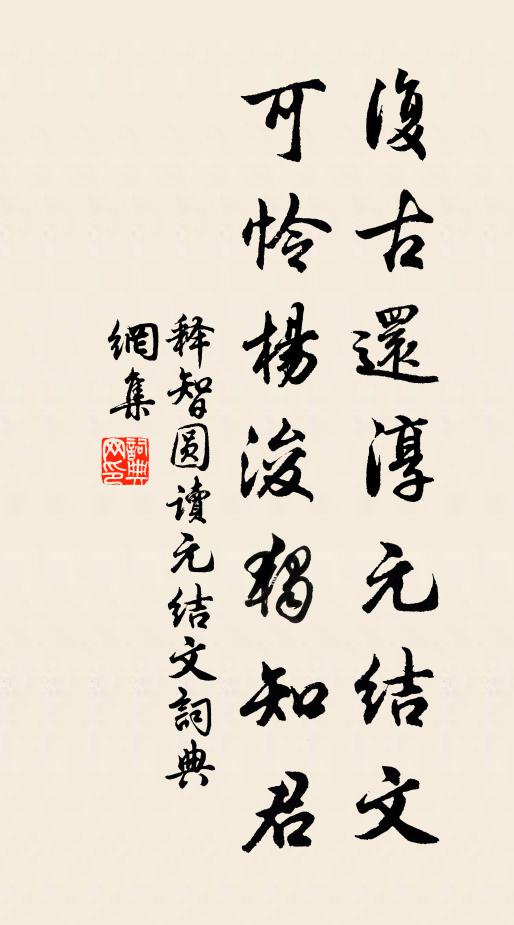 復古還淳元结文
可怜楊浚獨知君
释智圆讀元结文詞典
網集
詞典网印